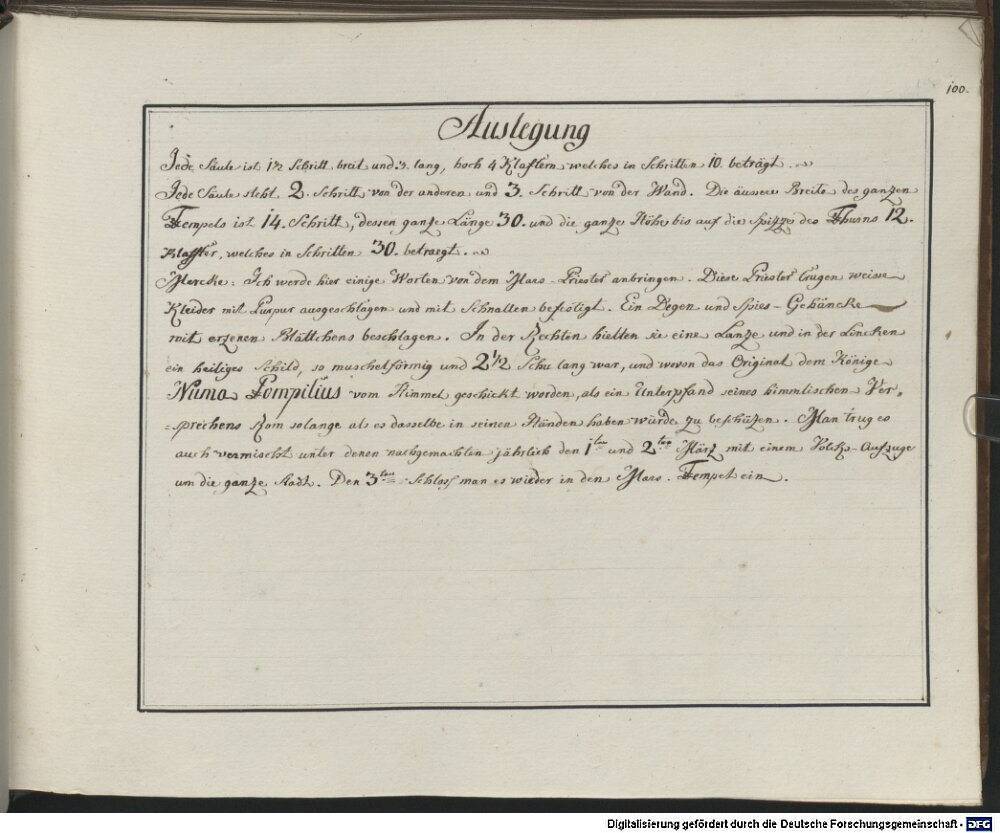 100.
Auslegung
Jede Säule ist 1½ Schritt breit und 3. lang, hoch 4 Klaftern welches in Schritten 10. beträgt.
Jede Säule steht 2. Schritt von der anderen und 3. Schritt von der Wand. Die äussere Breite des ganzen
Tempels ist 14. Schritt, dessen ganze Länge 30. und die ganze Höhe bis auf die Spizze des Thurns 12.
Klaffter, welches in Schritten 30. betraegt.
Mercke: Ich werde hier einige Worten von dem Mars-Priester anbringen. Diese Priester trugen weisse
Kleider mit Purpur ausgeschlagen und mit Schnallen befestigt. Ein Degen und Spies-Gehäncke
mit erzenen Blättchens beschlagen. In der Rechten hielten sie eine Lanze und in der Lincken
ein heiliges Schild, so muschelförmig und 2½ Schu lang war, und wovon das Original dem Könige
Numa Pompilius vom Himmel geschickt worden, als ein Unterpfand seines himmlischen Ver-
-sprechens Rom solange als es dasselbe in seinen Händen haben würde zu beschützen. Man trug es
auch vermischt unter denen nachgemachten jährlich den 1ten und 2ten Märtz mit einem Volcks-Aufzuge
um die ganze Stadt. Den 3ten Schloss man es wieder in den Mars-Tempel ein.
Digitalisierung gefördert durch die Deutsche Forschungsgemeinschaft - DFG